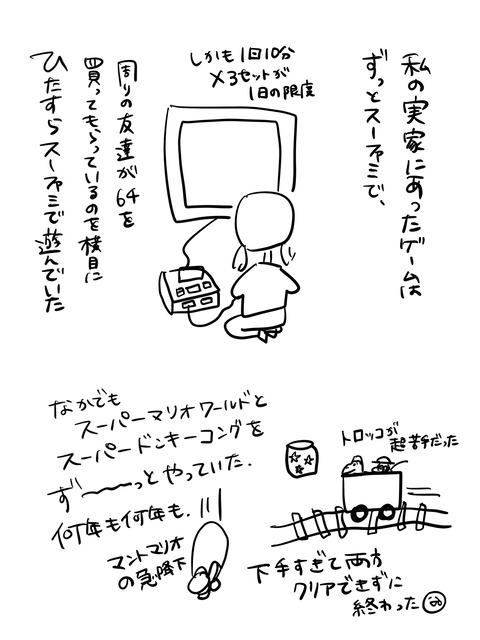 私の実家にあったゲームは
ずっとスーファミで、
しかも1日10分
×3セットが
1日の限度
周りの友達が64を
買ってもらっているのを横目に
ひたすらスーファミで遊んでいた
なかでも
スーパーマリオワールドと
スーパードンキーコングを
ず〜〜っとやっていた.
何年も何年も.
マントマリオ
の急降下
トロッコが
超苦手だった
下手すぎて両方
クリアできずに
終わった